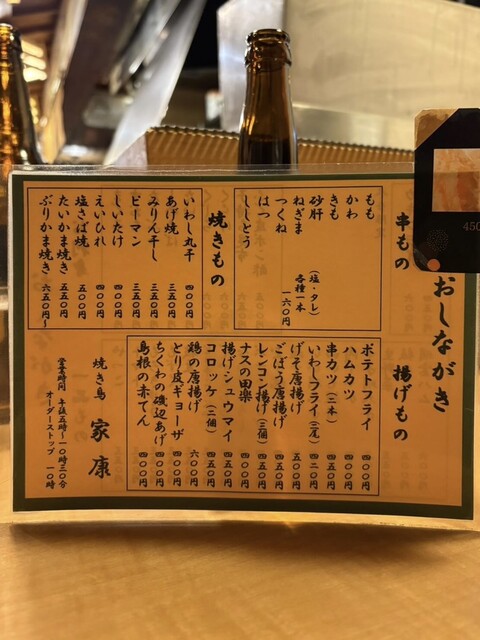 おしながき
串もの
もも
かわ
きも
砂肝
ねぎま
つくね
はつ
ししとう
(塩・タレ)
各種一本
一六〇円
焼きもの
いわし丸干 四〇〇円
あげ焼 三五〇円
みりん干し 四〇〇円
ピーマン 三五〇円
しいたけ 四〇〇円
えいひれ 四〇〇円
塩さば焼 五〇〇円
たいかま焼き 五五〇円
ぶりかま焼き 六五〇円〜
揚げもの
ポテトフライ 四〇〇円
ハムカツ 四〇〇円
串カツ(二本) 四五〇円
いわしフライ(二尾) 四二〇円
げそ唐揚げ 五五〇円
ごぼう唐揚げ 四五〇円
レンコン揚げ(三個) 四五〇円
ナスの田楽 四五〇円
揚げシュウマイ 四〇〇円
コロッケ(二個) 四〇〇円
鶏の唐揚げ 六〇〇円
とり皮ギョーザ 四〇〇円
ちくわの磯辺あげ 四〇〇円
島根の赤てん 四〇〇円
焼き鳥 家康
営業時間 午後五時〜一〇時三〇分
オーダーストップ 一〇時
450